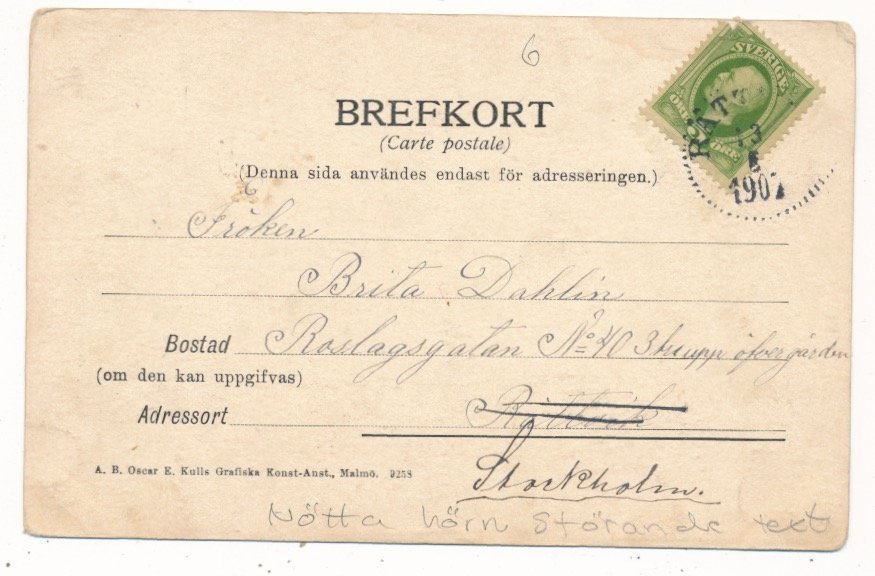 6
BREFKORT
(Carte postale)
(Denna sida användes endast för adresseringen.)
SVERIGE
RÄTT
13
1907
Fröken
Brita Dahlin
Bostad Roslagsgatan No 40 3 tr upp öfver gården
(om den kan uppgifvas)
Adressort Rättvik
Stockholm.
A. B. Oscar E. Kulls Grafiska Konst-Anst., Malmö. 9258
Nötta hörn störande text